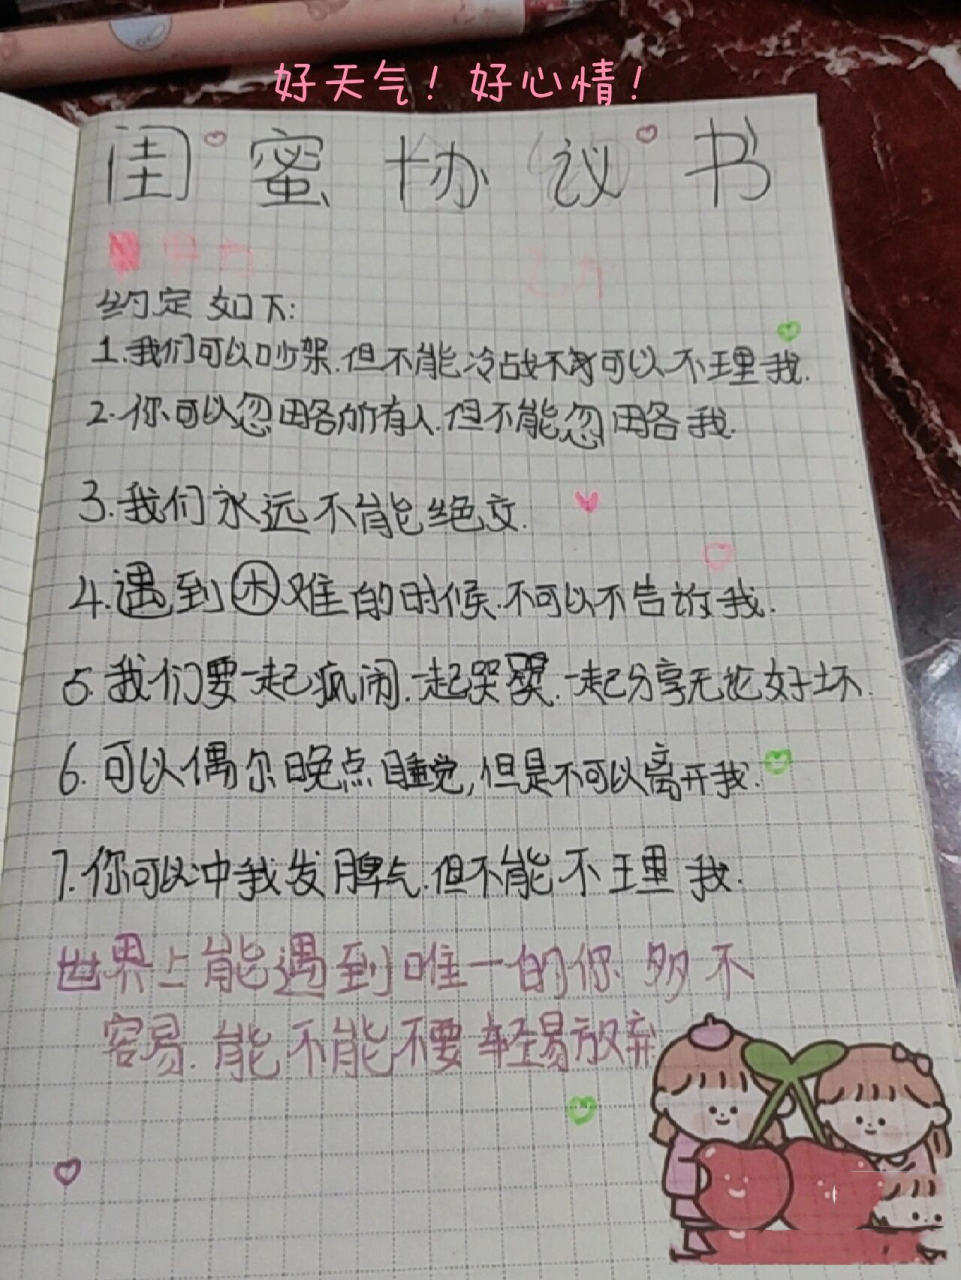 好天气！好心情！
闺蜜协议书
甲方 乙方
约定如下:
1.我们可以吵架.但不能冷战不可以不理我.
2.你可以忽略所有人.但不能忽略我.
3.我们永远不能绝交.
4.遇到困难的时候.不可以不告诉我.
5.我们要一起疯闹.一起哭.一起分享无论好坏.
6.可以偶尔晚点睡觉,但是不可以离开我.
7.你可以冲我发脾气.但不能不理我.
世界上能遇到唯一的你多不
容易.能不能不要轻易放弃